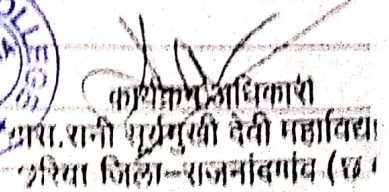 COLLEGE
कार्यक्रम अधिकारी
शास. रानी सूर्यमुखी देवी महाविद्या
छुरिया जिला-राजनांदगांव (छ.